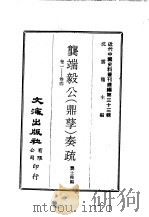 近代中國史料叢刊續編第三十三輯
沈雲龍主編
龔端毅公(鼎孳)奏疏
卷一——卷四
龔士稚編
文海出版社有限公司印行